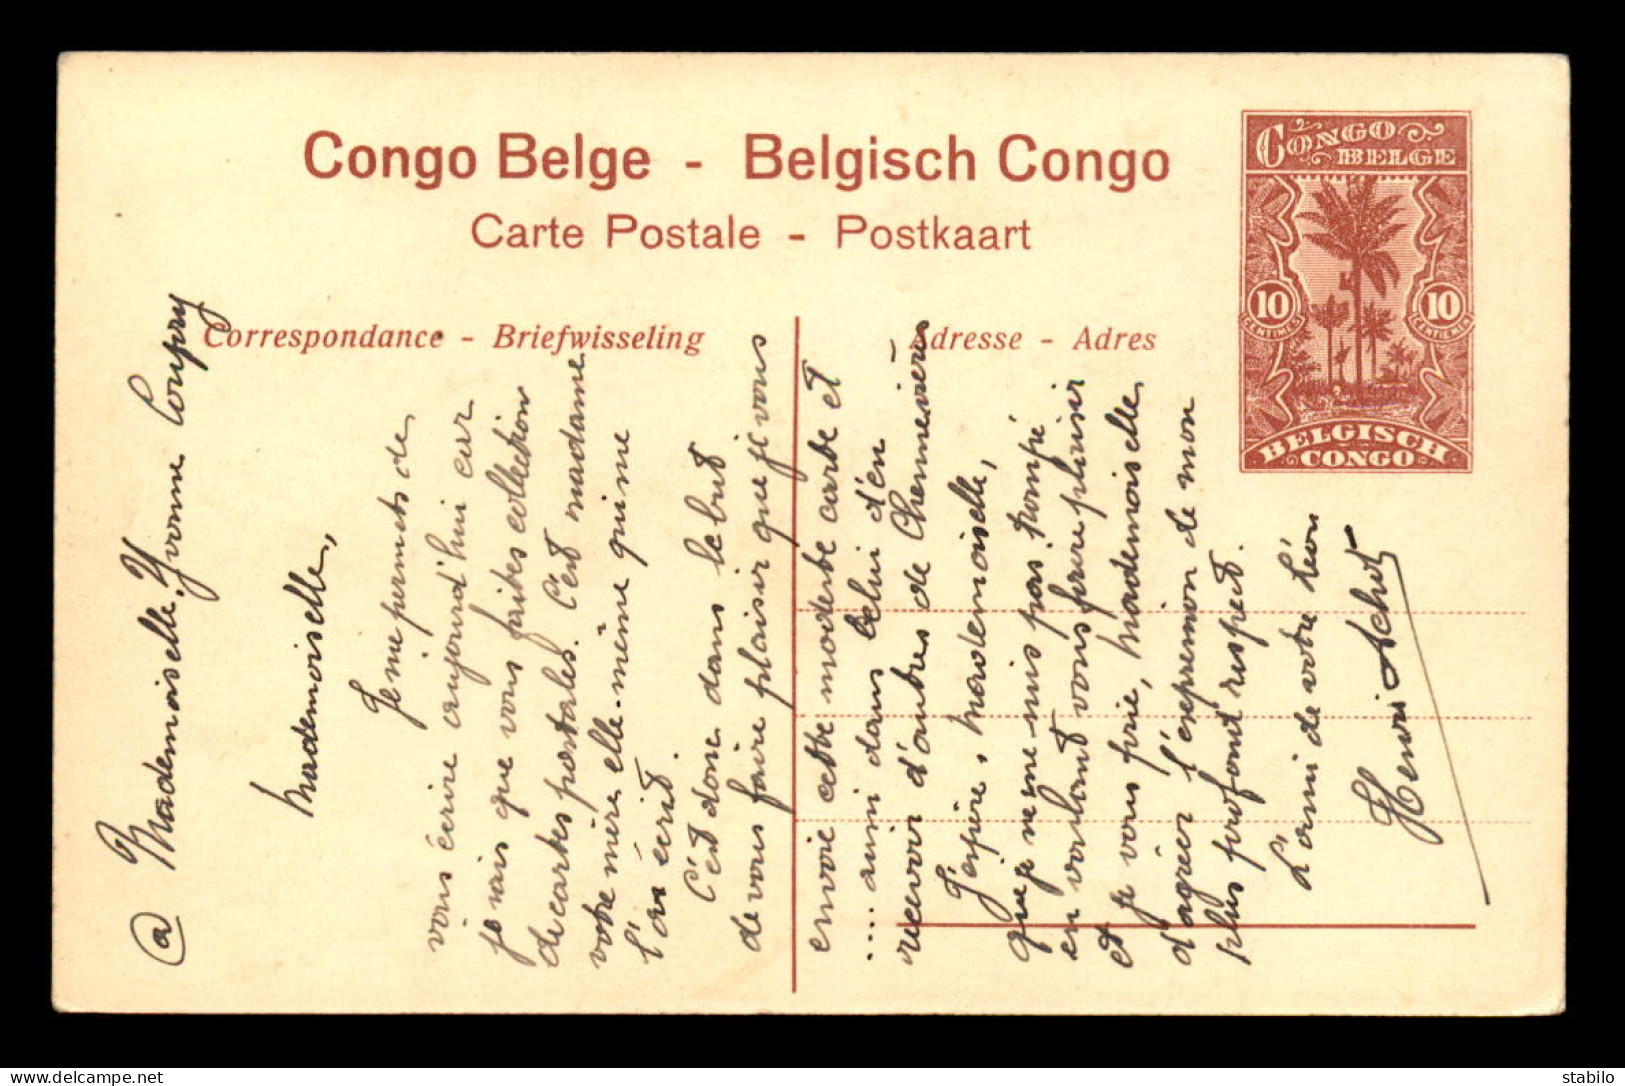 Congo Belge - Belgisch Congo
Carte Postale - Postkaart
Correspondance - Briefwisseling
Adresse - Adres
CONGO
BELGE
10
10
CENTIMES
CENTIEMEN
BELGISCH
CONGO
@ Mademoiselle, Yvonne Coupry
Mademoiselle,
Je me permets de
vous écrire aujourd'hui car
je sais que vous faites collection
de cartes postales. C'est madame
votre mère elle-même qui me
l'a écrit.
C'est donc dans le but
de vous faire plaisir que je vous
envoie cette modeste carte et
... aussi dans celui d'en
recevoir d'autres de Chennevières
J'espère, mademoiselle,
que je ne me suis pas trompé
en voulant vous faire plaisir
et je vous prie, Mademoiselle,
d'agréer l'expression de mon
plus profond respect.
L'ami de votre Léon
Henri
stabilo